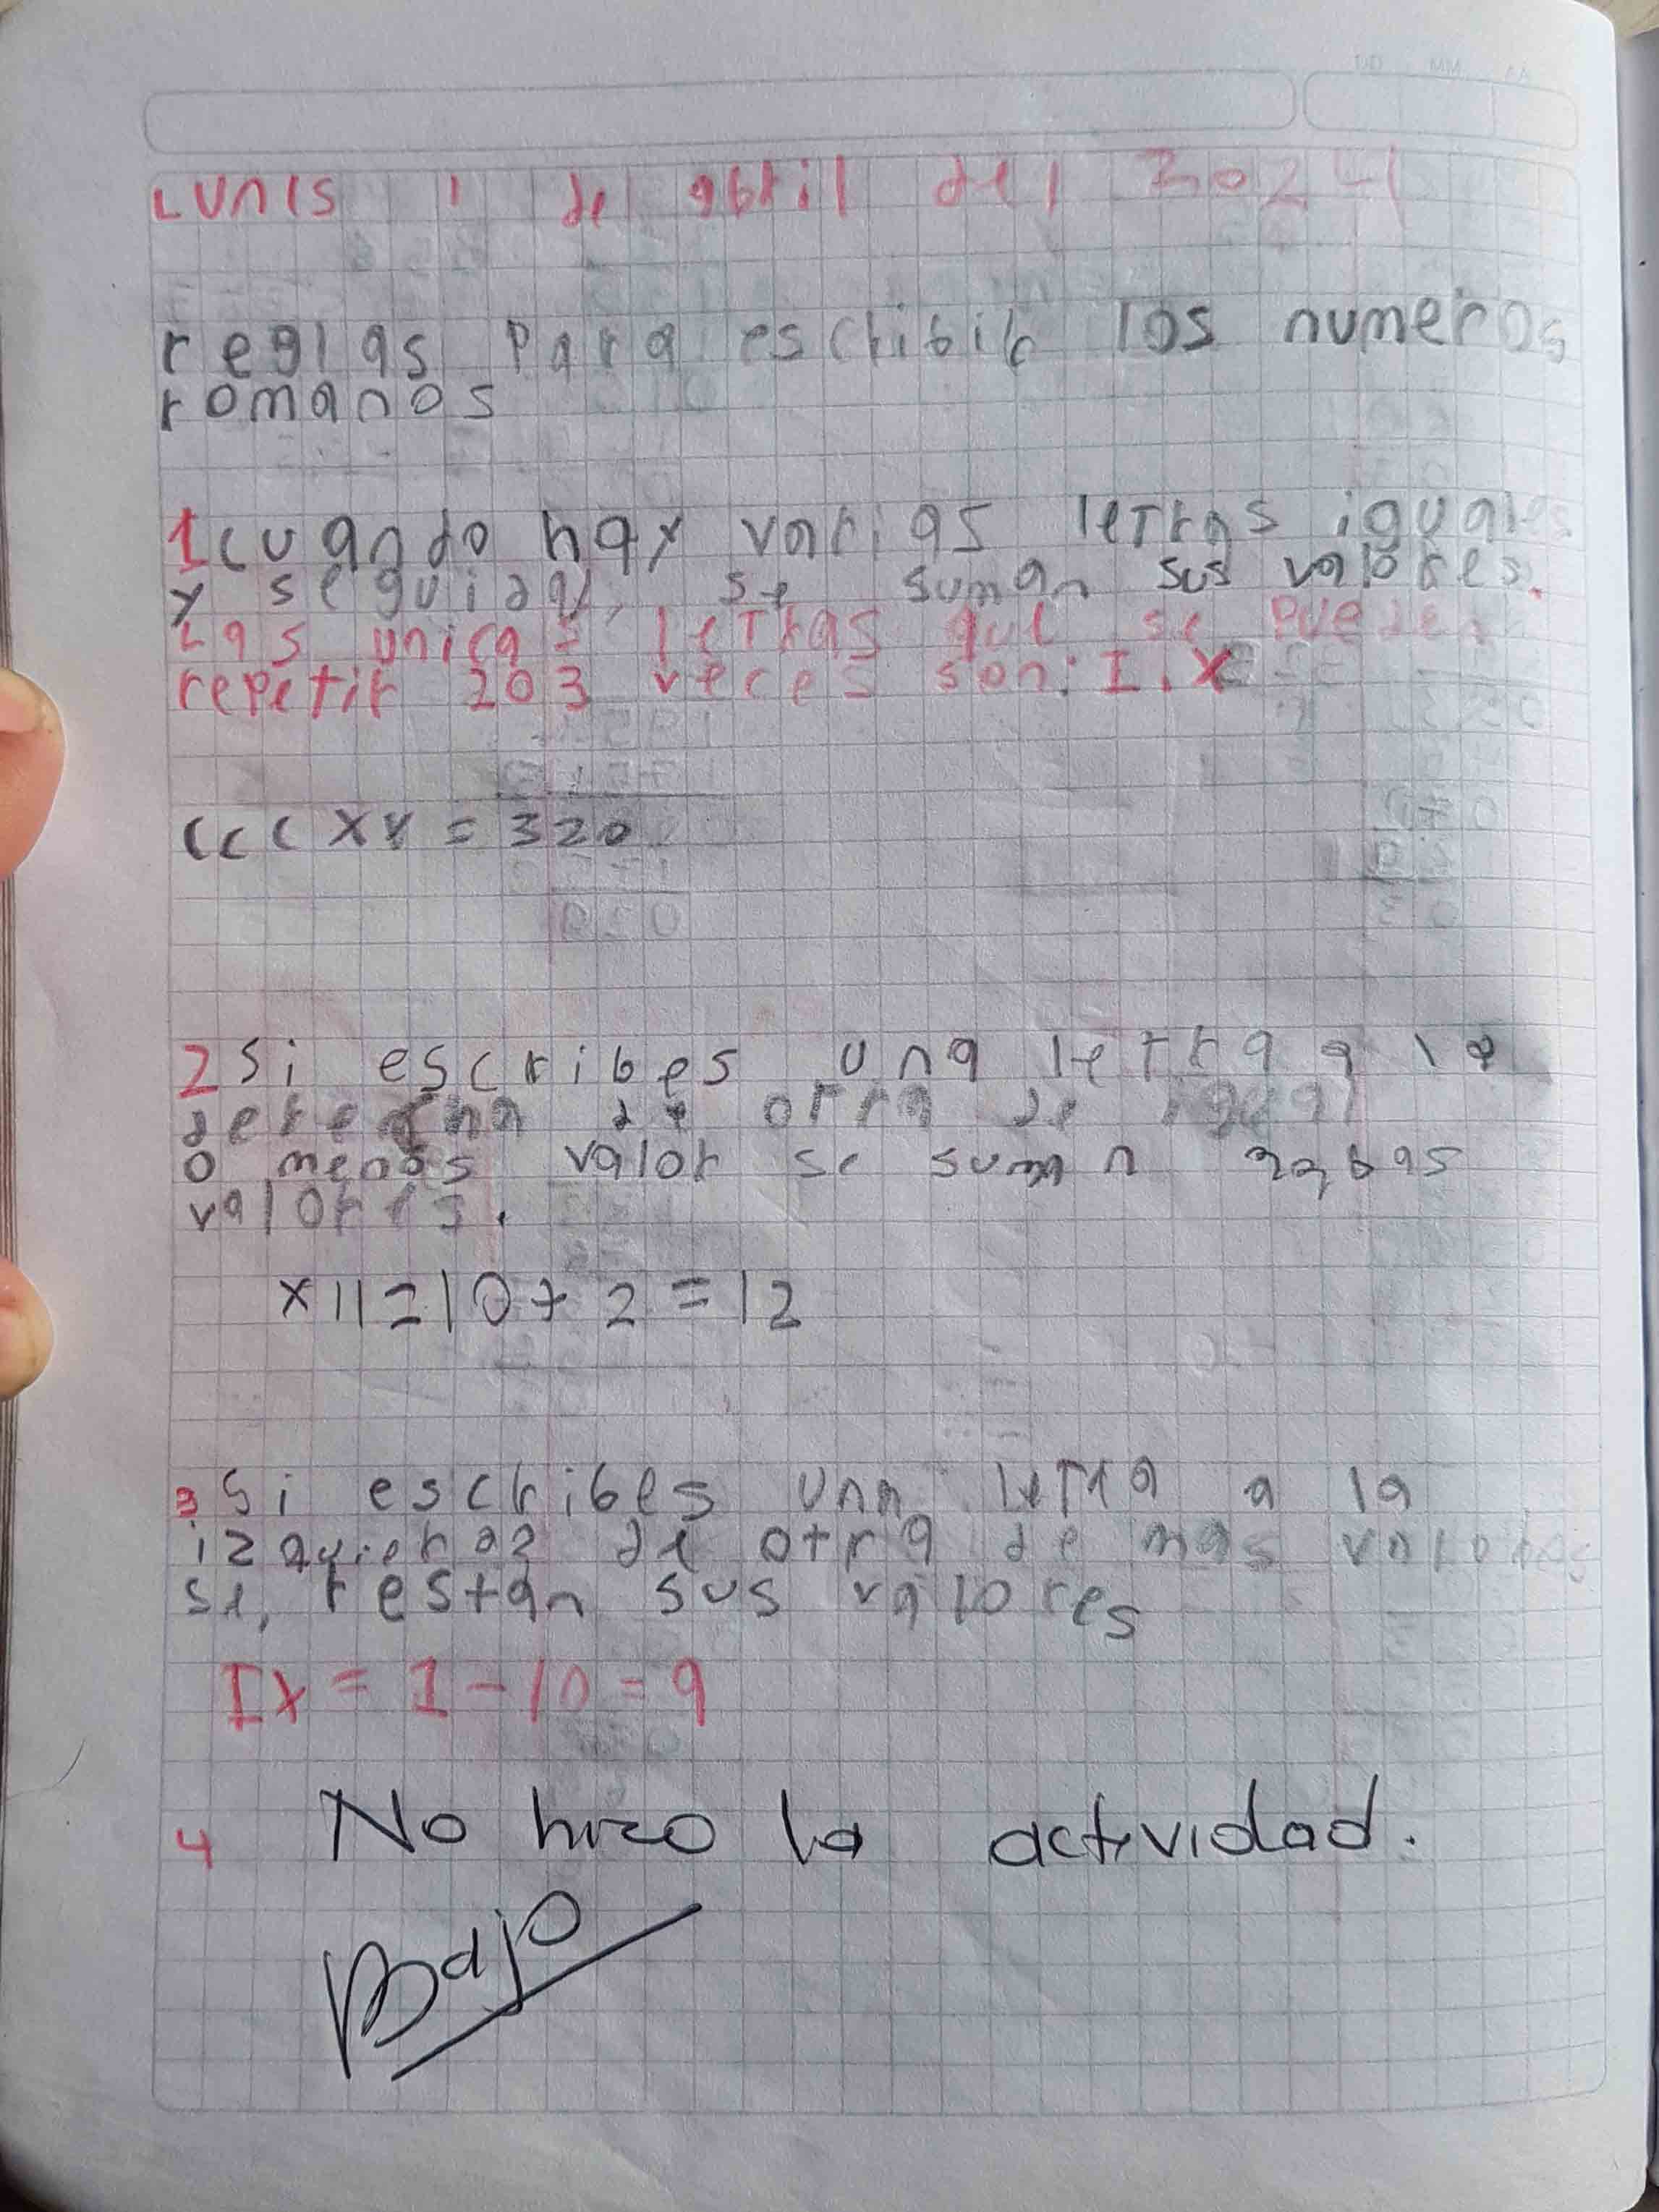 Lunes 1 de abril del 2024
reglas Para escribir los numeros
romanos
1 cuando hay varias letras iguales
y seguidas, se suman sus valores.
Las unicas letras que se pueden
repetir 2 o 3 veces son: I. X
CCCXX = 320
2 Si escribes una letra a la
derecha de otra de igual
o menos valor se suman
valores.
XII = 10 + 2 = 12
3 Si escribes una letra a la
de otra de mas
se, restan sus valores
IX = 1 - 10 = 9
4 No hizo la actividad.
Bajo